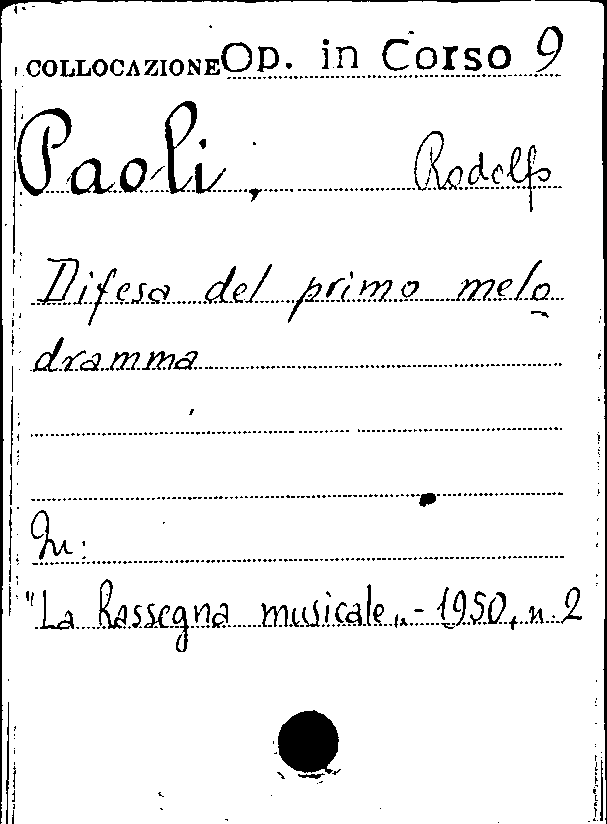 COLLOCAZIONE Op. in Corso 9
Paoli, Rodolfo
Difesa del primo melo
dramma
In:
"La Rassegna musicale„ - 1950, n. 2